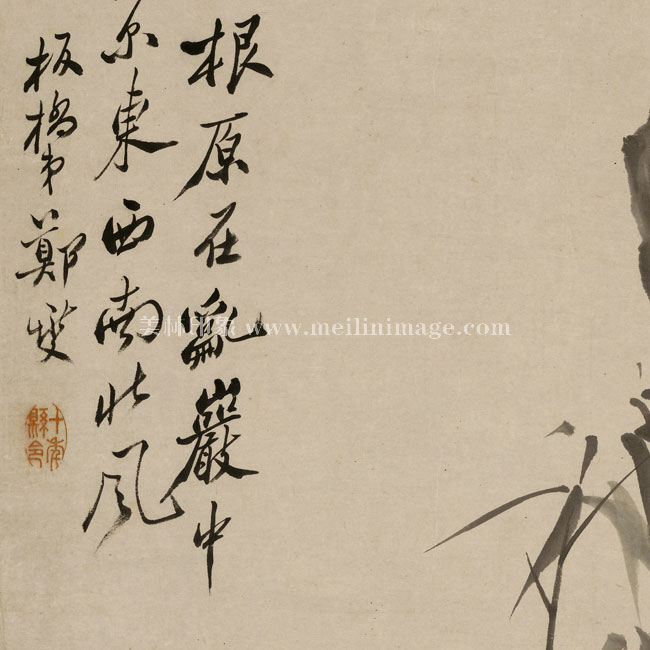 根原在亂巖中
尔東西南北風
板橋弟鄭燮
十年縣令
美林印象 www.meilinimage.com